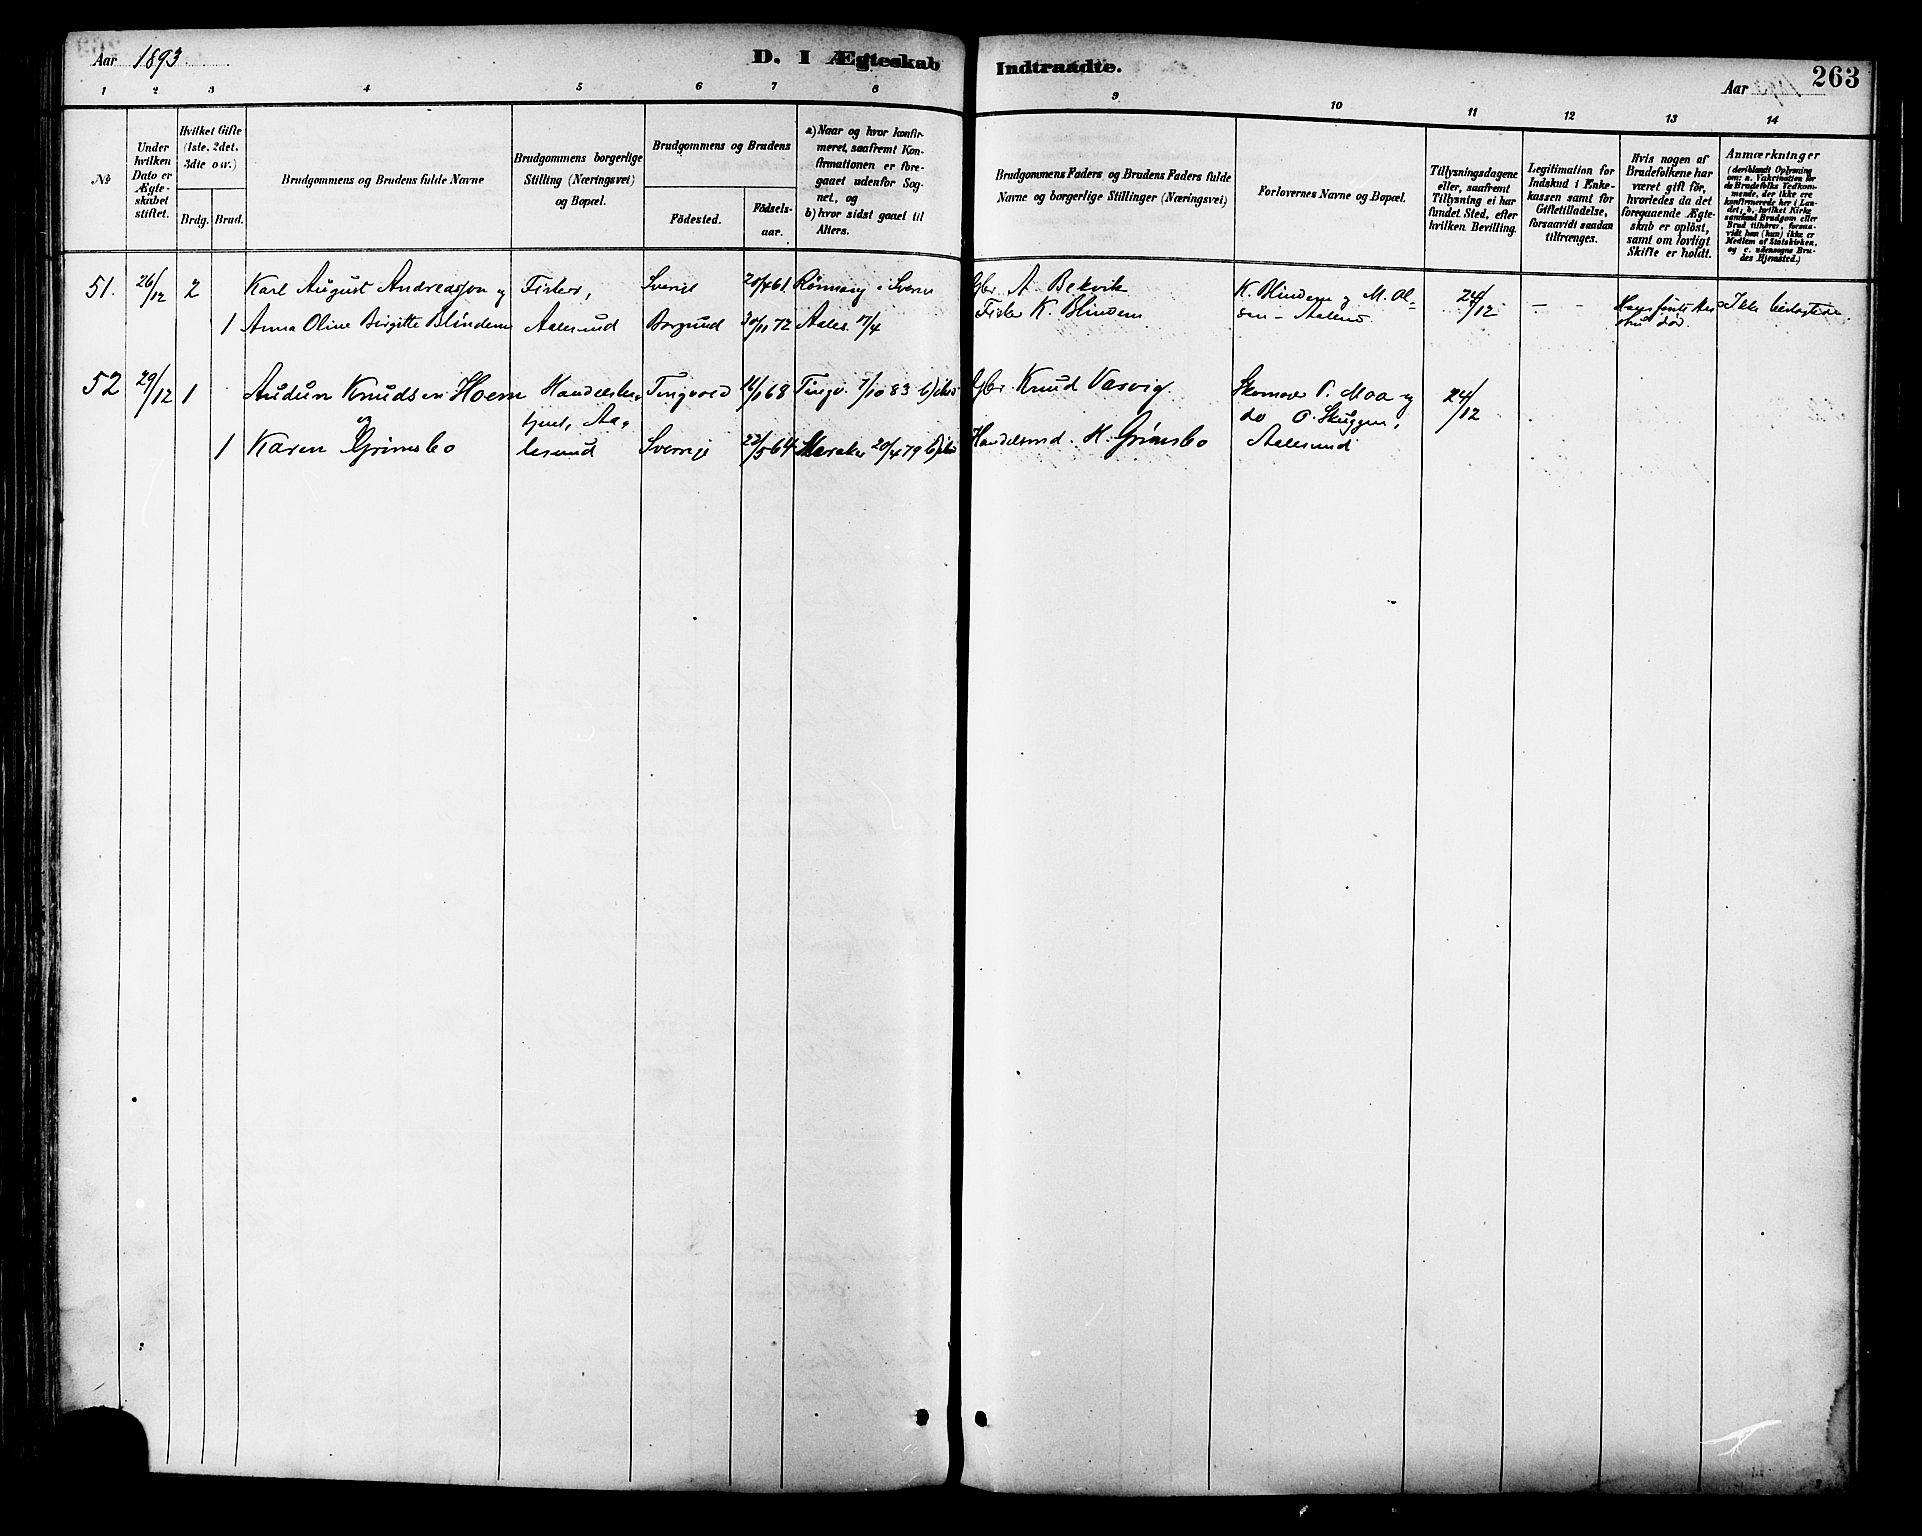 Aar 1893
D. I Ægteskab Indtraadte.
Aar 1893
263
1 2 3 4 5 6 7 8 9 10 11 12 13 14
№
Under hvilken Dato er Ægteskabet stiftet.
Hvilket Gifte (1ste, 2det, 3die o.s.v.)
Brdg. Brud.
Brudgommens og Brudens fulde Navne
Brudgommens borgerlige Stilling (Næringsvei) og Bopæl.
Brudgommens og Brudens
Fødested.
Fødselsaar.
a) Naar og hvor konfirmeret, saafremt Konfirmationen er foregaaet udenfor Sognet, og
b) hvor sidst gaaet til Alters.
Brudgommens Faders og Brudens Faders fulde Navne og borgerlige Stillinger (Næringsvei)
Forlovernes Navne og Bopæl.
Tillysningsdagene eller, saafremt Tillysning ei har fundet Sted, efter hvilken Bevilling.
Legitimation for Indskud i Enkekassen samt for Giftetilladelse, forsaavidt saadan tiltrænges.
Hvis nogen af Brudefolkene har været gift før, hvorledes da det foregaaende Ægteskab er opløst, samt om lovligt Skifte er holdt.
Anmærkninger
(deriblandt Oplysning om: a. Vaktination for de Brudefolks Vedkommende, der ikke ere konfirmerede her i Landet; b. hvilket Kirkesamfund Brudgom eller Brud tilhører, forsaavidt han (hun) ikke er Medlem af Statskirken, og c. udensogns Brudes Hjemsted.)
51. 26/12 2 Karl August Andreasson og Fisker, Sverige 20/4 61 i Sverie Gbr. A. Bekvik K. Blindem og M. Ol- 24/12 - - Ikke
1 Anna Oline Birgitte Blindem Aalesund Borgund 30/11 72 Aales. 17/4 Fisker K. Blindem sen - Aalesd. død
52 29/12 1 Audun Knudsen Hoem Tingvold 16/1 68 Tingv. 7/10 83 Gbr. Knud Vasvig Skomager P. Moa og 24/12
og Aa- do O. Skuggen,
1 Karen Grimsbo lesund Sverrige 22/5 64 Meraker 20/4 79 Handelsmd. H. Grimsbo Aalesund